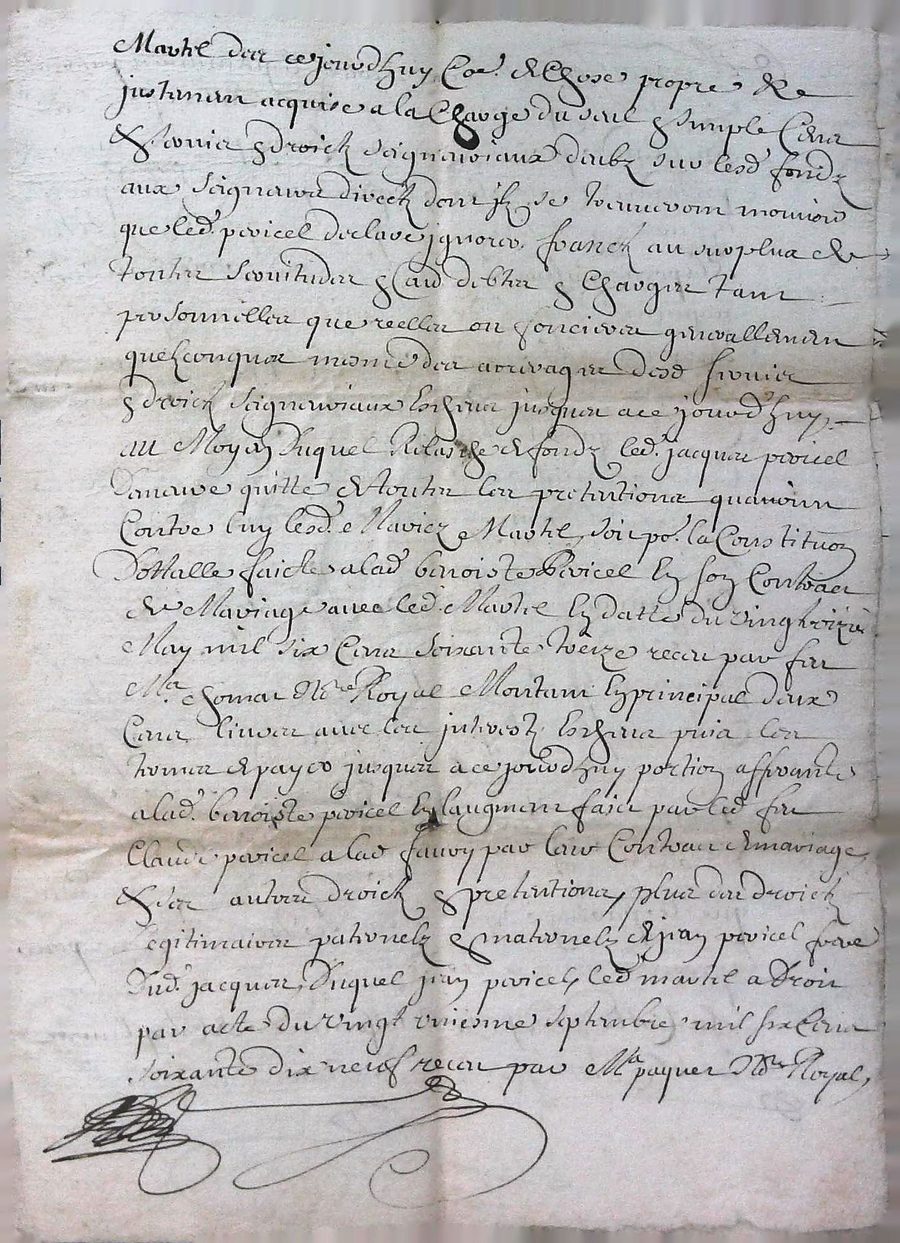 Martel des ce jourdhuy Co.e de Chose propre &
justemen acquise a la Charge du seul & simple Cens
& servis & droictz seigneuriaux deubz sur lesd. fondz
aux seigneurs directz dont ilz se trouveront mouvoir
que led. pericel declare ignorer, francz au surplus de
toutes servitudes & debtes & Charges tant
personnelles que reelles ou foncieres generallemen
quelconques mesme des arreyages desd servis
& droictz seigneuriaux Escheus jusques a ce jourdhuy
au Moyen Duquel Relasche de fondz led. jacques pericel
Demeure quitte de toutes les pretentions quavoient
Contre luy lesd. Mariez Martel, soit po. la Constituon
Dottalle faicte a lad. benoiste Pericel En son Contract
de Mariage avec led. Martel En datte du vingt
May mil six Cens soixante treize receu par feu
M.e Nore Royal Montant En principal deux
Cens livres avec les interestz Escheus puis les
termes de payer jusques a ce jourdhuy portion afferante
a lad. benoiste pericel En laugment faict par led feu
Claude pericel a lad favry par leur Contract de mariage,
& des autres droictz & pretentions, plus des droictz
Legitimaires paternelz & maternelz de jean pericel frere
Dud. jacques, Duquel jean pericel, led martel a droit
par acte du vingt uniesme septembre mil six Cens
soixante dix neuf receu par M.e paquet Nore Royal,